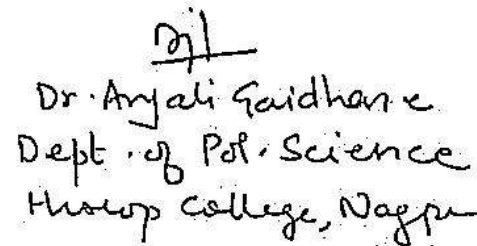 Dr. Anjali Gaidhane
Dept. of Pol. Science
Hislop College, Nagpu